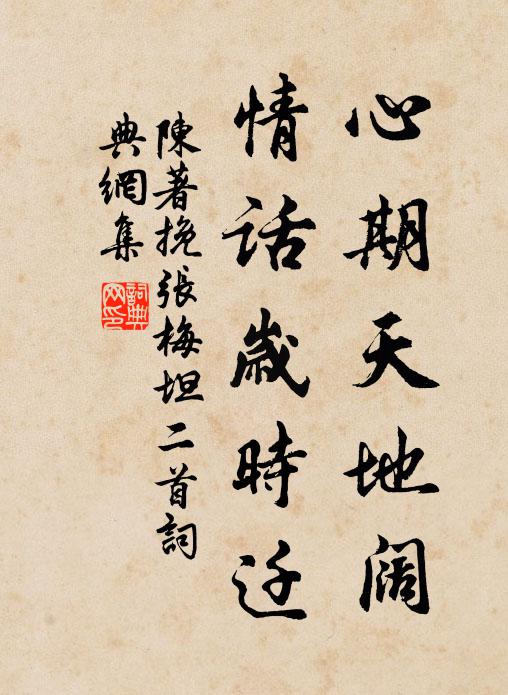 心期天地阔
情话歳時迁
陳著挽張梅坦二首詞
典網集
詞典网印